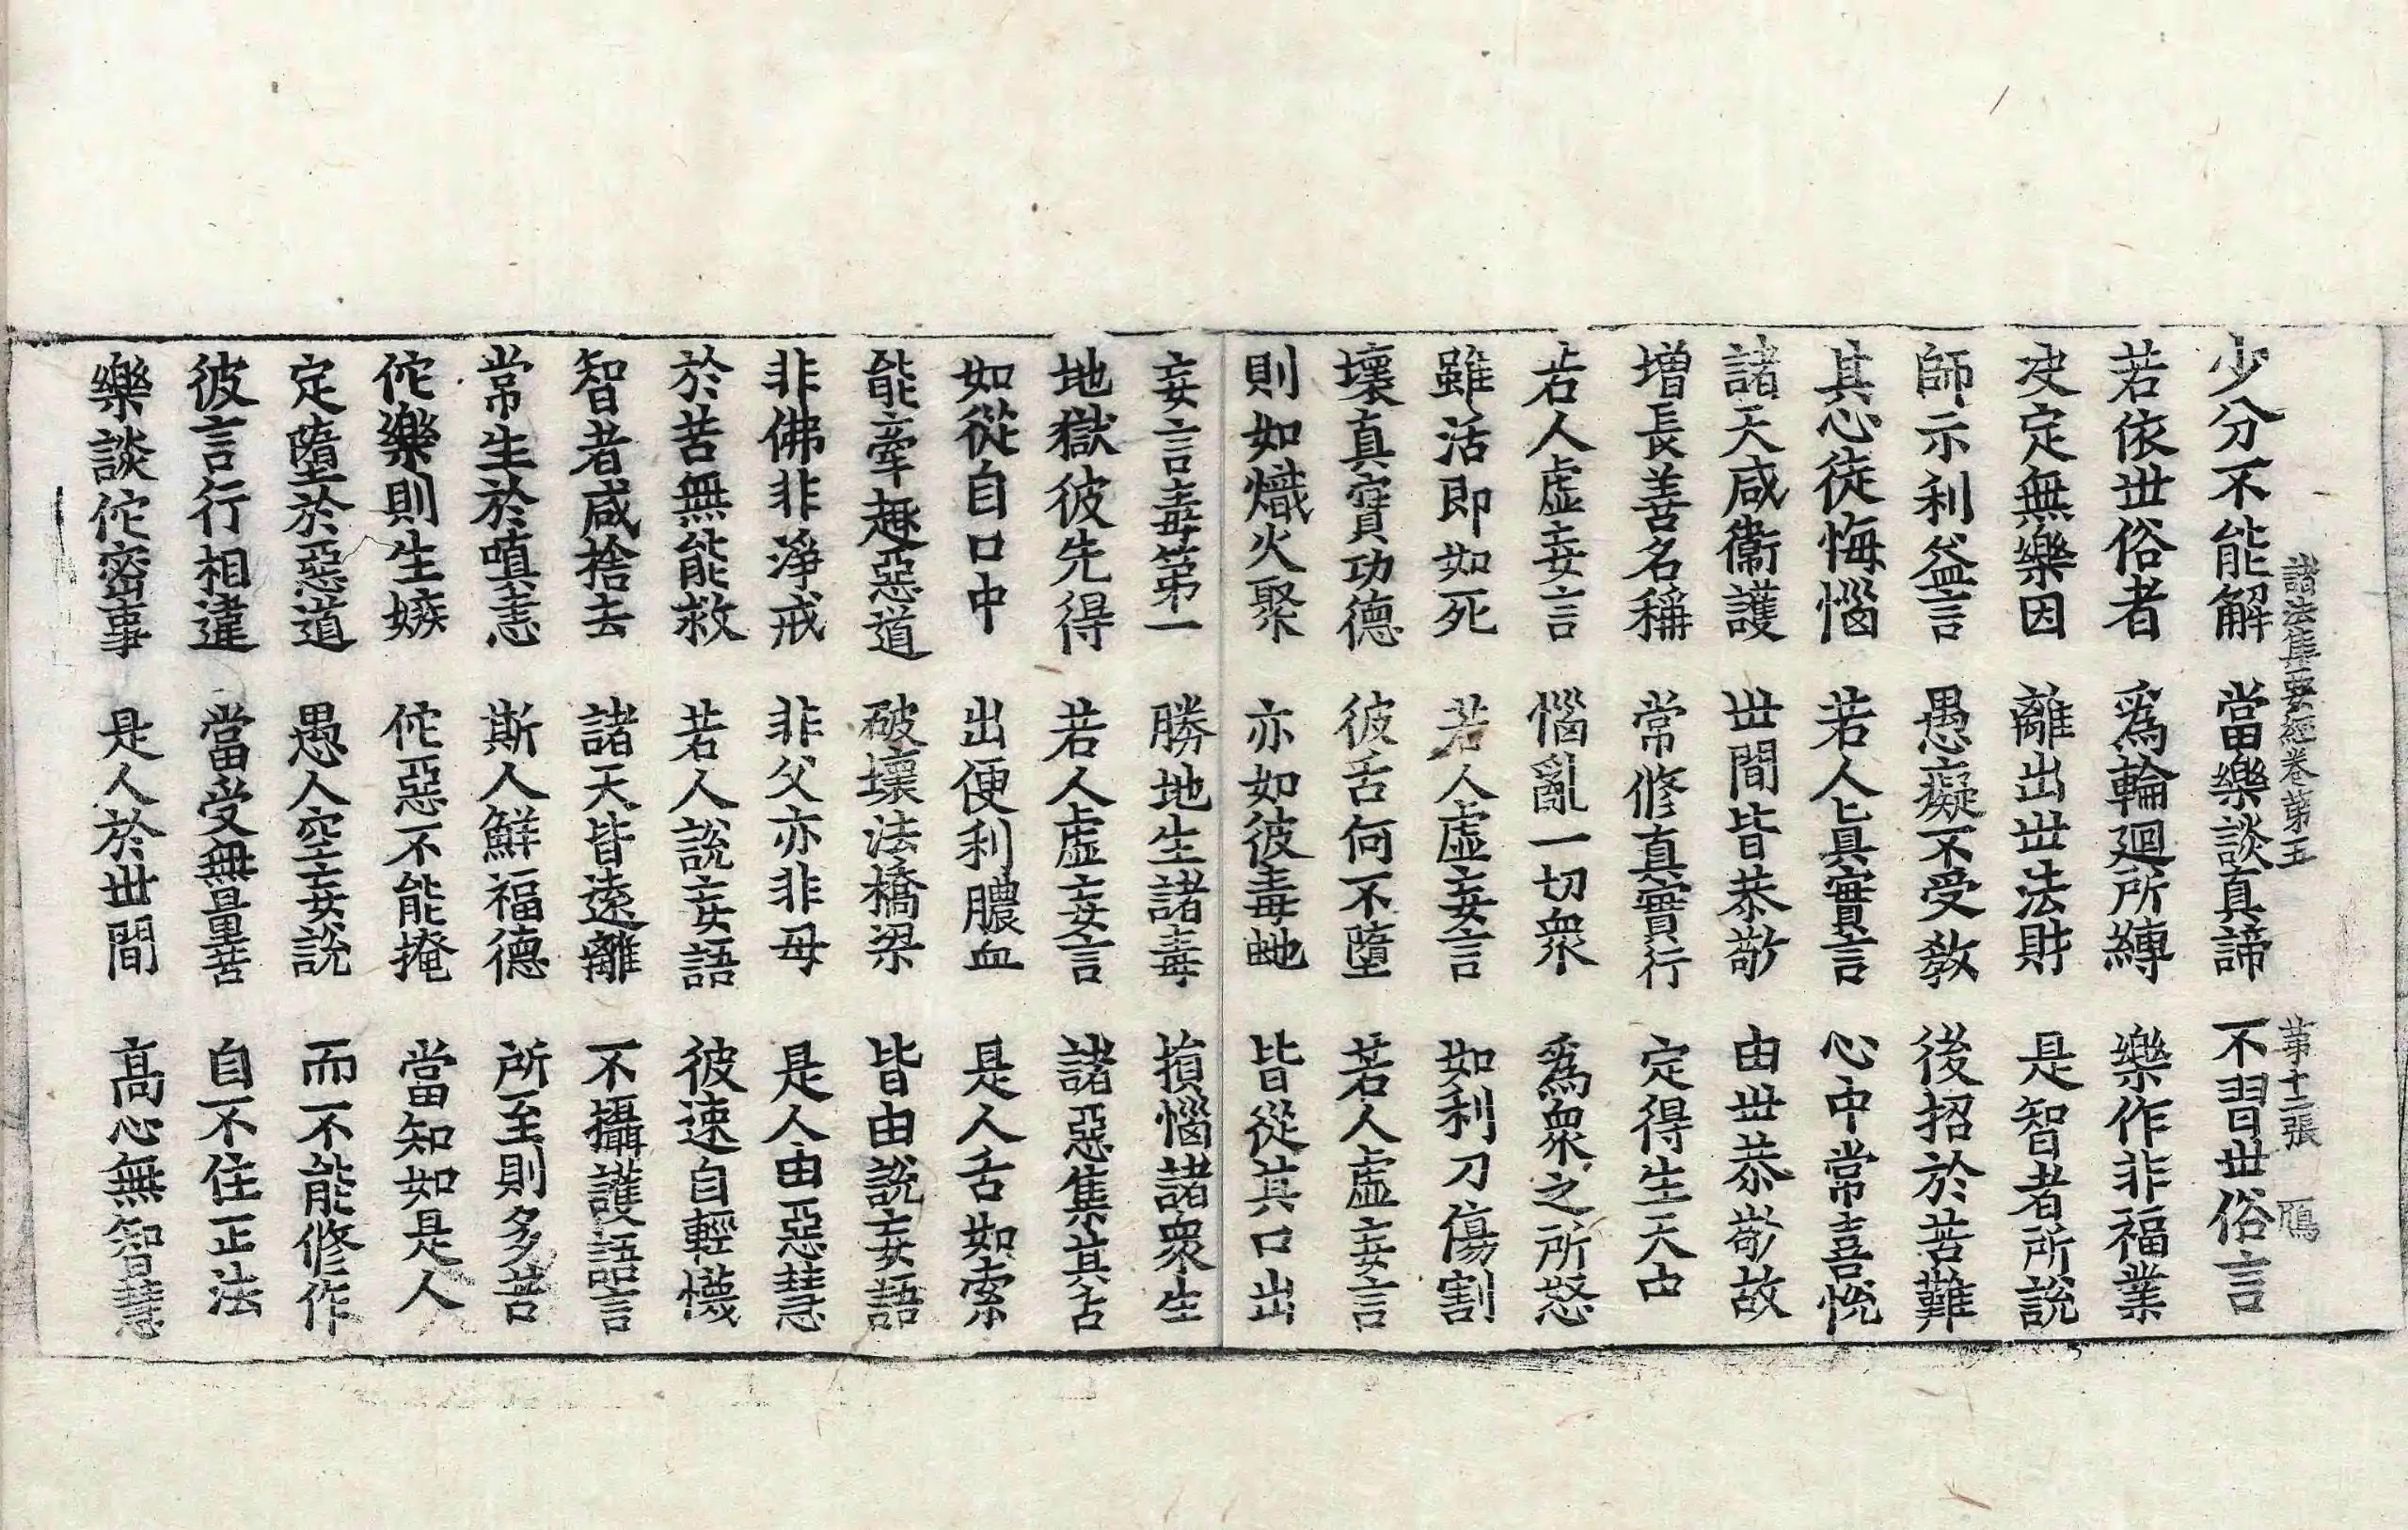 諸法集要經卷第五 第十二張 鴈
少分不能解 當樂談真諦 不習世俗言
若依世俗者 爲輪迴所縛 樂作非福業
决定無樂因 離出世法財 是智者所說
師示利益言 愚癡不受教 後招於苦難
其心徒悔惱 若人真實言 心中常喜悅
諸天咸衞護 世間皆恭敬 由世恭敬故
增長善名稱 常修真實行 定得生天中
若人虛妄言 惱亂一切衆 爲衆之所怒
雖活即如死 若人虛妄言 如利刀傷割
壞真實功德 彼舌何不墮 若人虛妄言
則如熾火聚 亦如彼毒虵 皆從其口出
妄言毒第一 勝地生諸毒 損惱諸衆生
地獄彼先得 若人虛妄言 諸惡集其舌
如從自口中 出便利膿血 是人舌如索
能牽趣惡道 破壞法橋梁 皆由說妄語
非佛非淨戒 非父亦非母 是人由惡慧
於苦無能救 若人說妄語 彼速自輕懱
智者咸捨去 諸天皆遠離 不攝護語言
常生於嗔恚 斯人鮮福德 所至則多苦
佗樂則生嫉 佗惡不能掩 當知如是人
定墮於惡道 愚人空妄說 而不能修作
彼言行相違 當受無量苦 自不住正法
樂談佗密事 是人於世間 高心無智慧